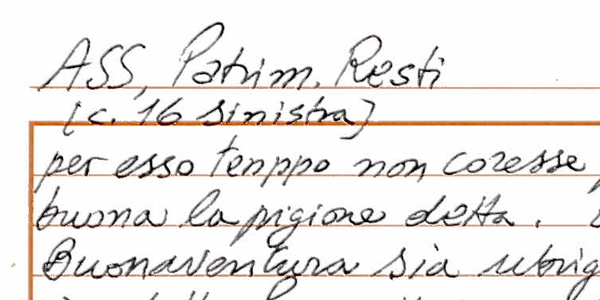 ASS, Patrim. Resti
[c. 16 sinistra]
per esso tenppo non coresse
buona la pigione detta.
Buonaventura sia ubrig